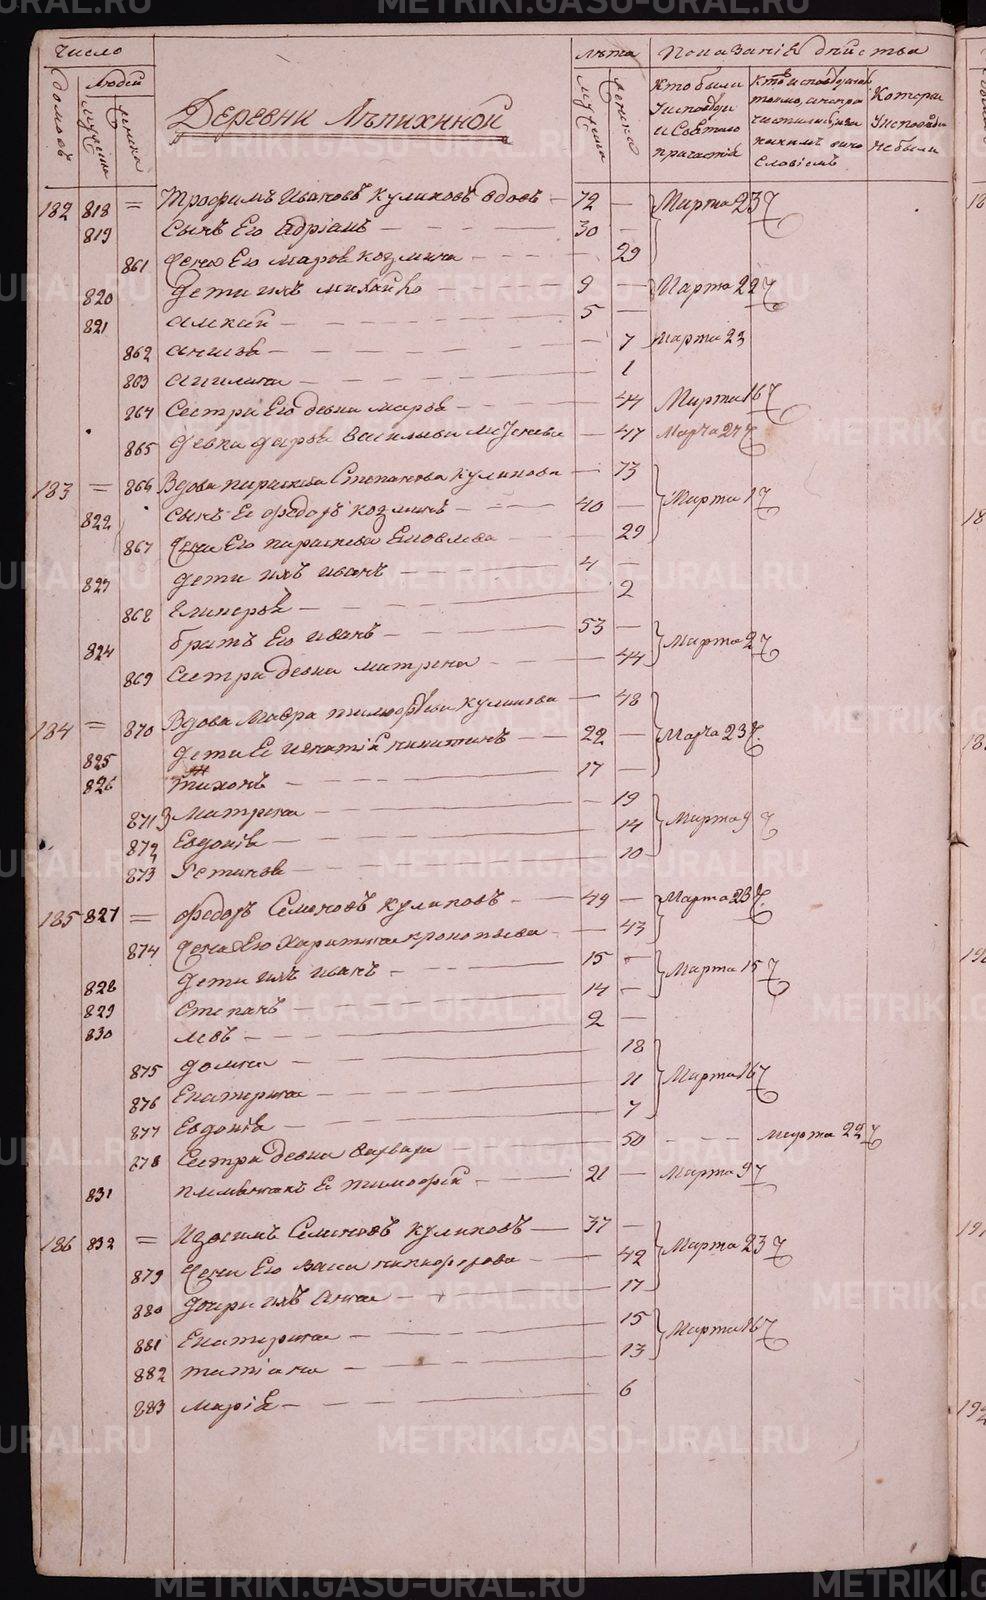 Число
домовъ
людей
мужеска
женска
Деревни Лѣпихиной
лѣта
мужеска
женска
Показанiе дѣйства
Кто были у исповѣди и святаго причастiя
Кто исповѣдались токмо, а не причастились и за какимъ винословiемъ
Которые у исповѣди не были
182 818 = Трофимъ Ивановъ Куликовъ вдовъ — 72 — Марта 23
819 Сынъ Его Адрiанъ — 30 —
861 Жена Его Марѳа Козмина — 29
820 Дети ихъ Михайло — 9 — Марта 22
821 — 5 —
862 — 7 Марта 23
863 — 1
864 Сестра Его девка Марѳа — 44 Марта 16
865 Девка Васильева — 47 Марта 24
183 = 866 Вдова Параскева Степанова Куликова — 73 Марта 1
822 Сынъ Ее Ѳедоръ Козминъ — 40 —
867 Жена Его Параскева Яковлева — 29
823 Дети ихъ Иванъ — 4 —
868 — 2
824 братъ Его Иванъ — 53 — Марта 2
869 Сестра девка Матрена — 44
184 = 870 Вдова Мавра Тимоѳѣева Куликова — 48
825 Дети Ее Игнатiй Никитинъ — 22 — Марта 23
826 Тихонъ — 17 —
871 Матрена — 19 Марта 9
872 Евдокiя — 14
873 Устинья — 10
185 827 = Ѳедоръ Семеновъ Куликовъ — 49 — Марта 23
874 Жена Его Харитина Прокопьева — 43
828 Дети ихъ Иванъ — 15 — Марта 15
829 Степанъ — 14 —
830 Левъ — 2 —
875 Домна — 18
876 Екатерина — 11 Марта 16
877 Евдокiя — 7
878 Сестра девка Варвара — 50 — — — Марта 22
831 племянникъ Ее Тимоѳей — 21 — Марта 9
186 832 = Изосимъ Семеновъ Куликовъ — 37 —
879 Жена Его Васса Никифорова — 42 Марта 23
880 Дочери ихъ Анна — 17
881 Екатерина — 15 Марта 16
882 Татiана — 13
883 Марiя — 6
METRIKI.GASO-URAL.RU